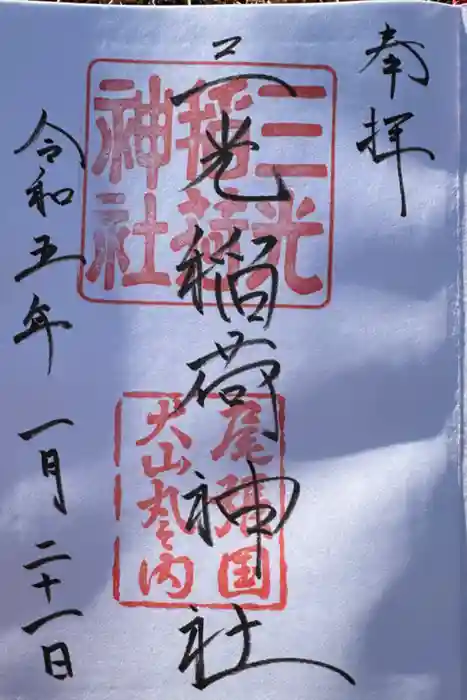 奉拝
三光稲荷神社
三光
稲荷
神社
尾張国
犬山丸之内
令和五年 一月 二十一日